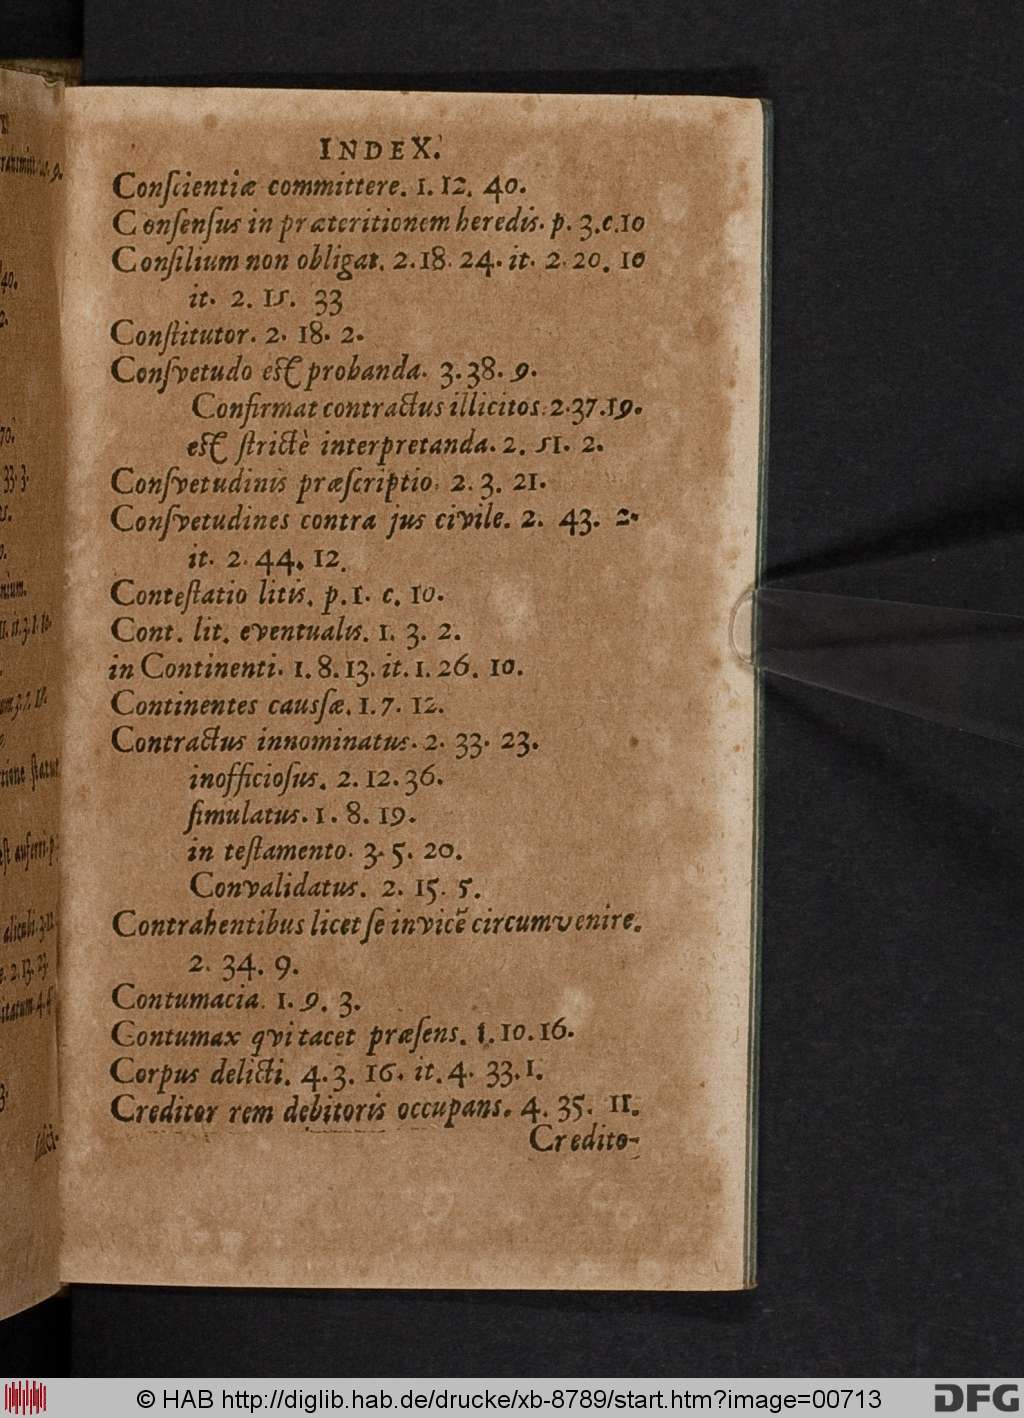 INDEX.
Conſcientiæ committere. 1. 12. 40.
Conſenſus in præteritionem heredis. p. 3. c. 10
Conſilium non obligat. 2. 18. 24. it. 2. 20. 10
it. 2. 15. 33
Conſtitutor. 2. 18. 2.
Conſvetudo eſt probanda. 3. 38. 9.
Confirmat contractus illicitos. 2. 37. 19.
eſt ſtrictè interpretanda. 2. 51. 2.
Conſvetudinis præſcriptio. 2. 3. 21.
Conſvetudines contra jus civile. 2. 43. 2.
it. 2. 44. 12.
Conteſtatio litis. p. 1. c. 10.
Cont. lit. eventualis. 1. 3. 2.
in Continenti. 1. 8. 13. it. 1. 26. 10.
Continentes causſæ. 1. 7. 12.
Contractus innominatus. 2. 33. 23.
inofficioſus. 2. 12. 36.
ſimulatus. 1. 8. 19.
in teſtamento. 3. 5. 20.
Convalidatus. 2. 15. 5.
Contrahentibus licet ſe invicē circumvenire.
2. 34. 9.
Contumacia. 1. 9. 3.
Contumax qvi tacet præſens. 1. 10. 16.
Corpus delicti. 4. 3. 16. it. 4. 33. 1.
Creditor rem debitoris occupans. 4. 35. 11.
Credito-
© HAB http://diglib.hab.de/drucke/xb-8789/start.htm?image=00713
DFG